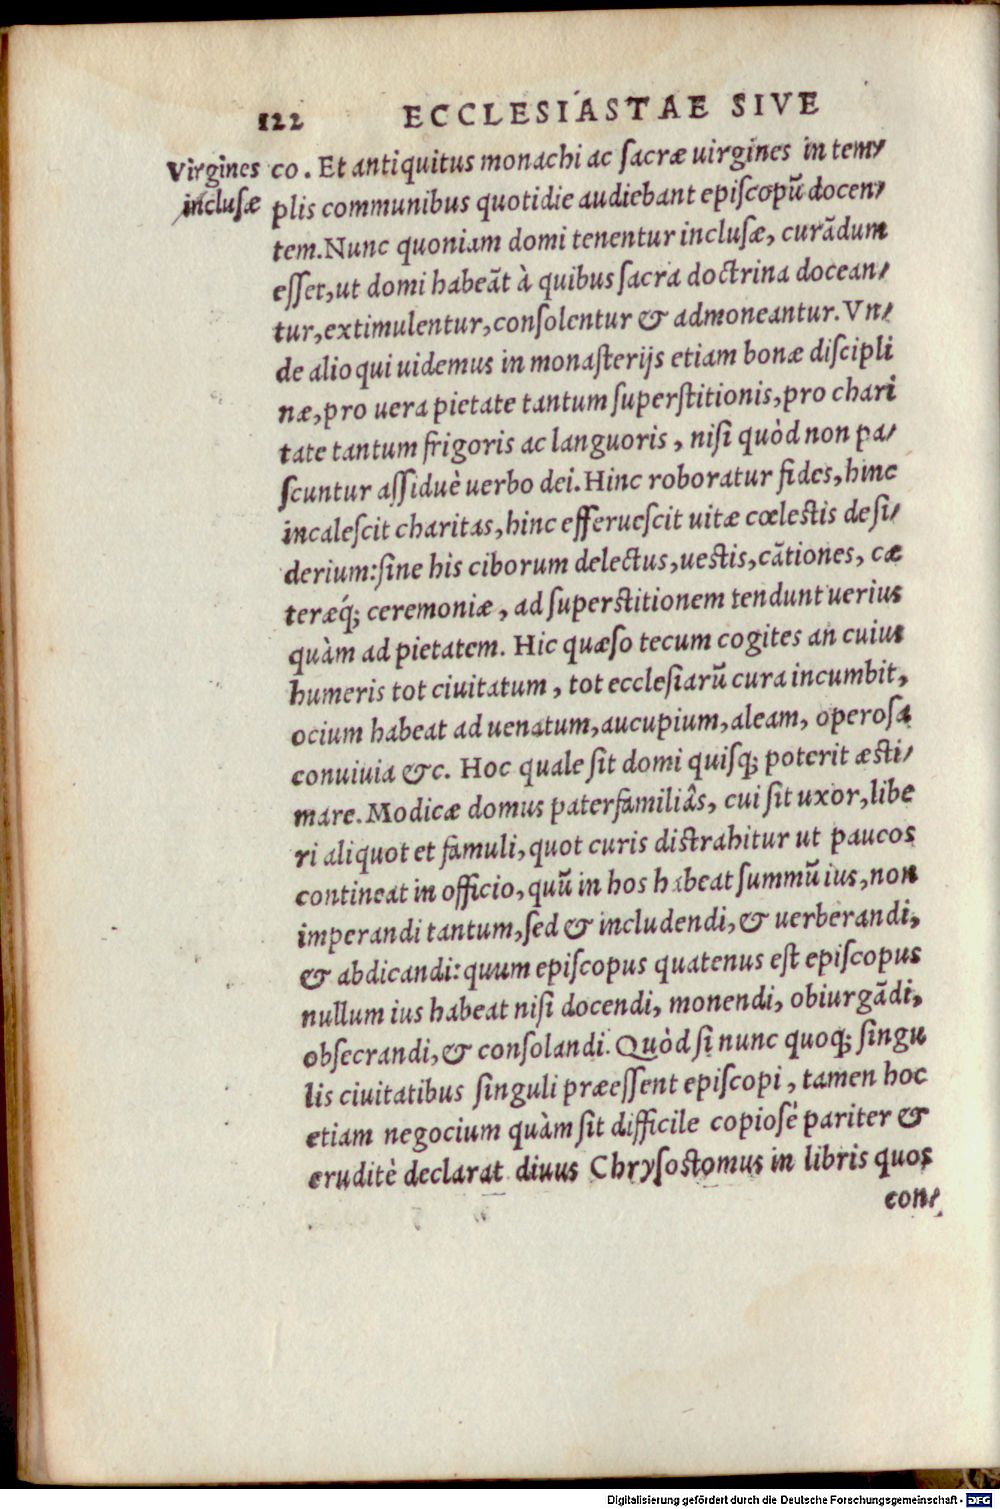 122 ECCLESIASTAE SIVE
Virgines
inclusæ
co. Et antiquitus monachi ac ſacræ uirgines in tem⸗
plis communibus quotidie audiebant epiſcopū docen⸗
tem. Nunc quoniam domi tenentur incluſæ, curādum
eſſet, ut domi habeāt à quibus ſacra doctrina docean⸗
tur, extimulentur, conſolentur & admoneantur. Vn⸗
de alioqui uidemus in monaſterijs etiam bonæ diſcipli
næ, pro uera pietate tantum ſuperſtitionis, pro chari
tate tantum frigoris ac languoris, niſi quòd non pa⸗
ſcuntur aſſiduè uerbo dei. Hinc roboratur fides, hinc
incaleſcit charitas, hinc efferueſcit uitæ cœleſtis deſi⸗
derium: ſine his ciborum delectus, ueſtis, cātiones, cæ
teræq́; ceremoniæ, ad ſuperſtitionem tendunt uerius
quàm ad pietatem. Hic quæſo tecum cogites an cuius
humeris tot ciuitatum, tot eccleſiarū cura incumbit,
ocium habeat ad uenatum, aucupium, aleam, operoſa
conuiuia &c. Hoc quale ſit domi quiſq; poterit æſti⸗
mare. Modicæ domus paterfamiliâs, cui ſit uxor, libe
ri aliquot et famuli, quot curis diſtrahitur ut paucos
contineat in officio, quū in hos habeat ſummū ius, non
imperandi tantum, ſed & includendi, & uerberandi,
& abdicandi: quum epiſcopus quatenus eſt epiſcopus
nullum ius habeat niſi docendi, monendi, obiurgādi,
obſecrandi, & conſolandi. Quòd ſi nunc quoq; ſingu
lis ciuitatibus ſinguli præeſſent epiſcopi, tamen hoc
etiam negocium quàm ſit difficile copioſè pariter &
eruditè declarat diuus Chryſoſtomus in libris quos
con⸗
Digitalisierung gefördert durch die Deutsche Forschungsgemeinschaft - DFG